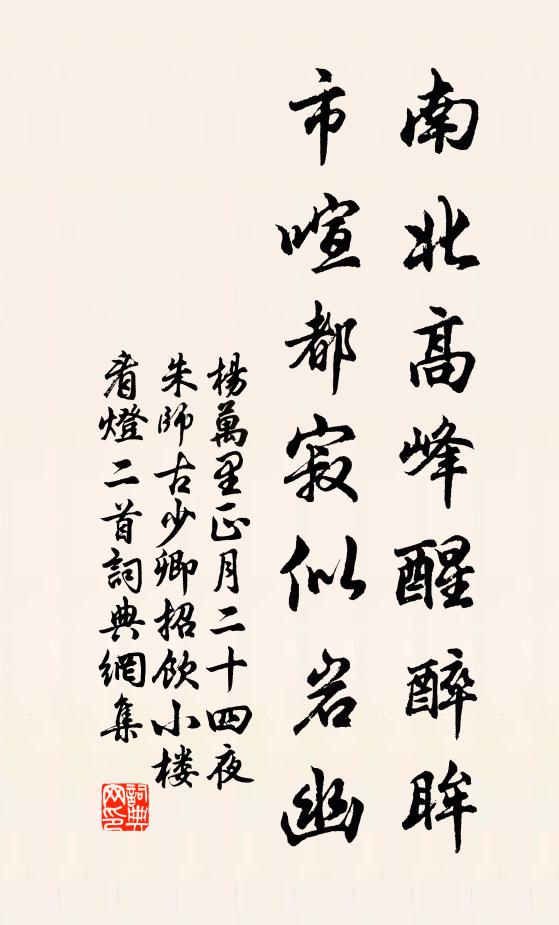 南北高峰醒醉眸
市喧都寂似岩幽
楊萬里正月二十四夜
朱師古少卿招飲小楼
看燈二首詞典網集
詞典
网印